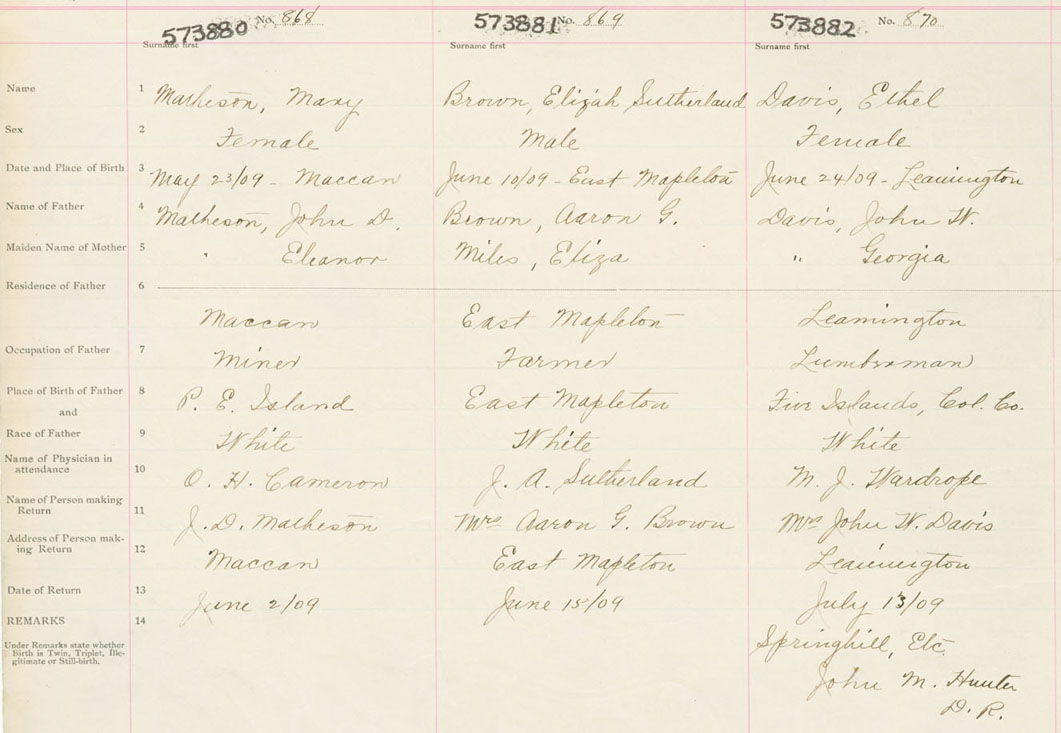 573880 No. 868 573881 No. 869 573882 No. 870
Surname first Surname first Surname first
Name 1 Matheson, Mary Brown, Elizah Sutherland Davis, Ethel
Sex 2 Female Male Female
Date and Place of Birth 3 May 23/09 - Maccan June 10/09 - East Mapleton June 24/09 - Leamington
Name of Father 4 Matheson, John D. Brown, Aaron G. Davis, John W.
Maiden Name of Mother 5 " Eleanor Miles, Eliza " Georgia
Residence of Father 6
Maccan East Mapleton Leamington
Occupation of Father 7 Miner Farmer Lumberman
Place of Birth of Father 8 P. E. Island East Mapleton Five Islands, Col. Co.
and
Race of Father 9 White White White
Name of Physician in
attendance 10 O. H. Cameron J. A. Sutherland M. J. Wardrope
Name of Person making
Return 11 J. D. Matheson Mrs Aaron G. Brown Mrs John W. Davis
Address of Person mak-
ing Return 12 Maccan East Mapleton Leamington
Date of Return 13 June 2/09 June 15/09 July 13/09
REMARKS 14
Under Remarks state whether
Birth is Twin, Triplet, Ille-
gitimate or Still-birth.
Springhill, Etc.
John M. Hunter
D. R.